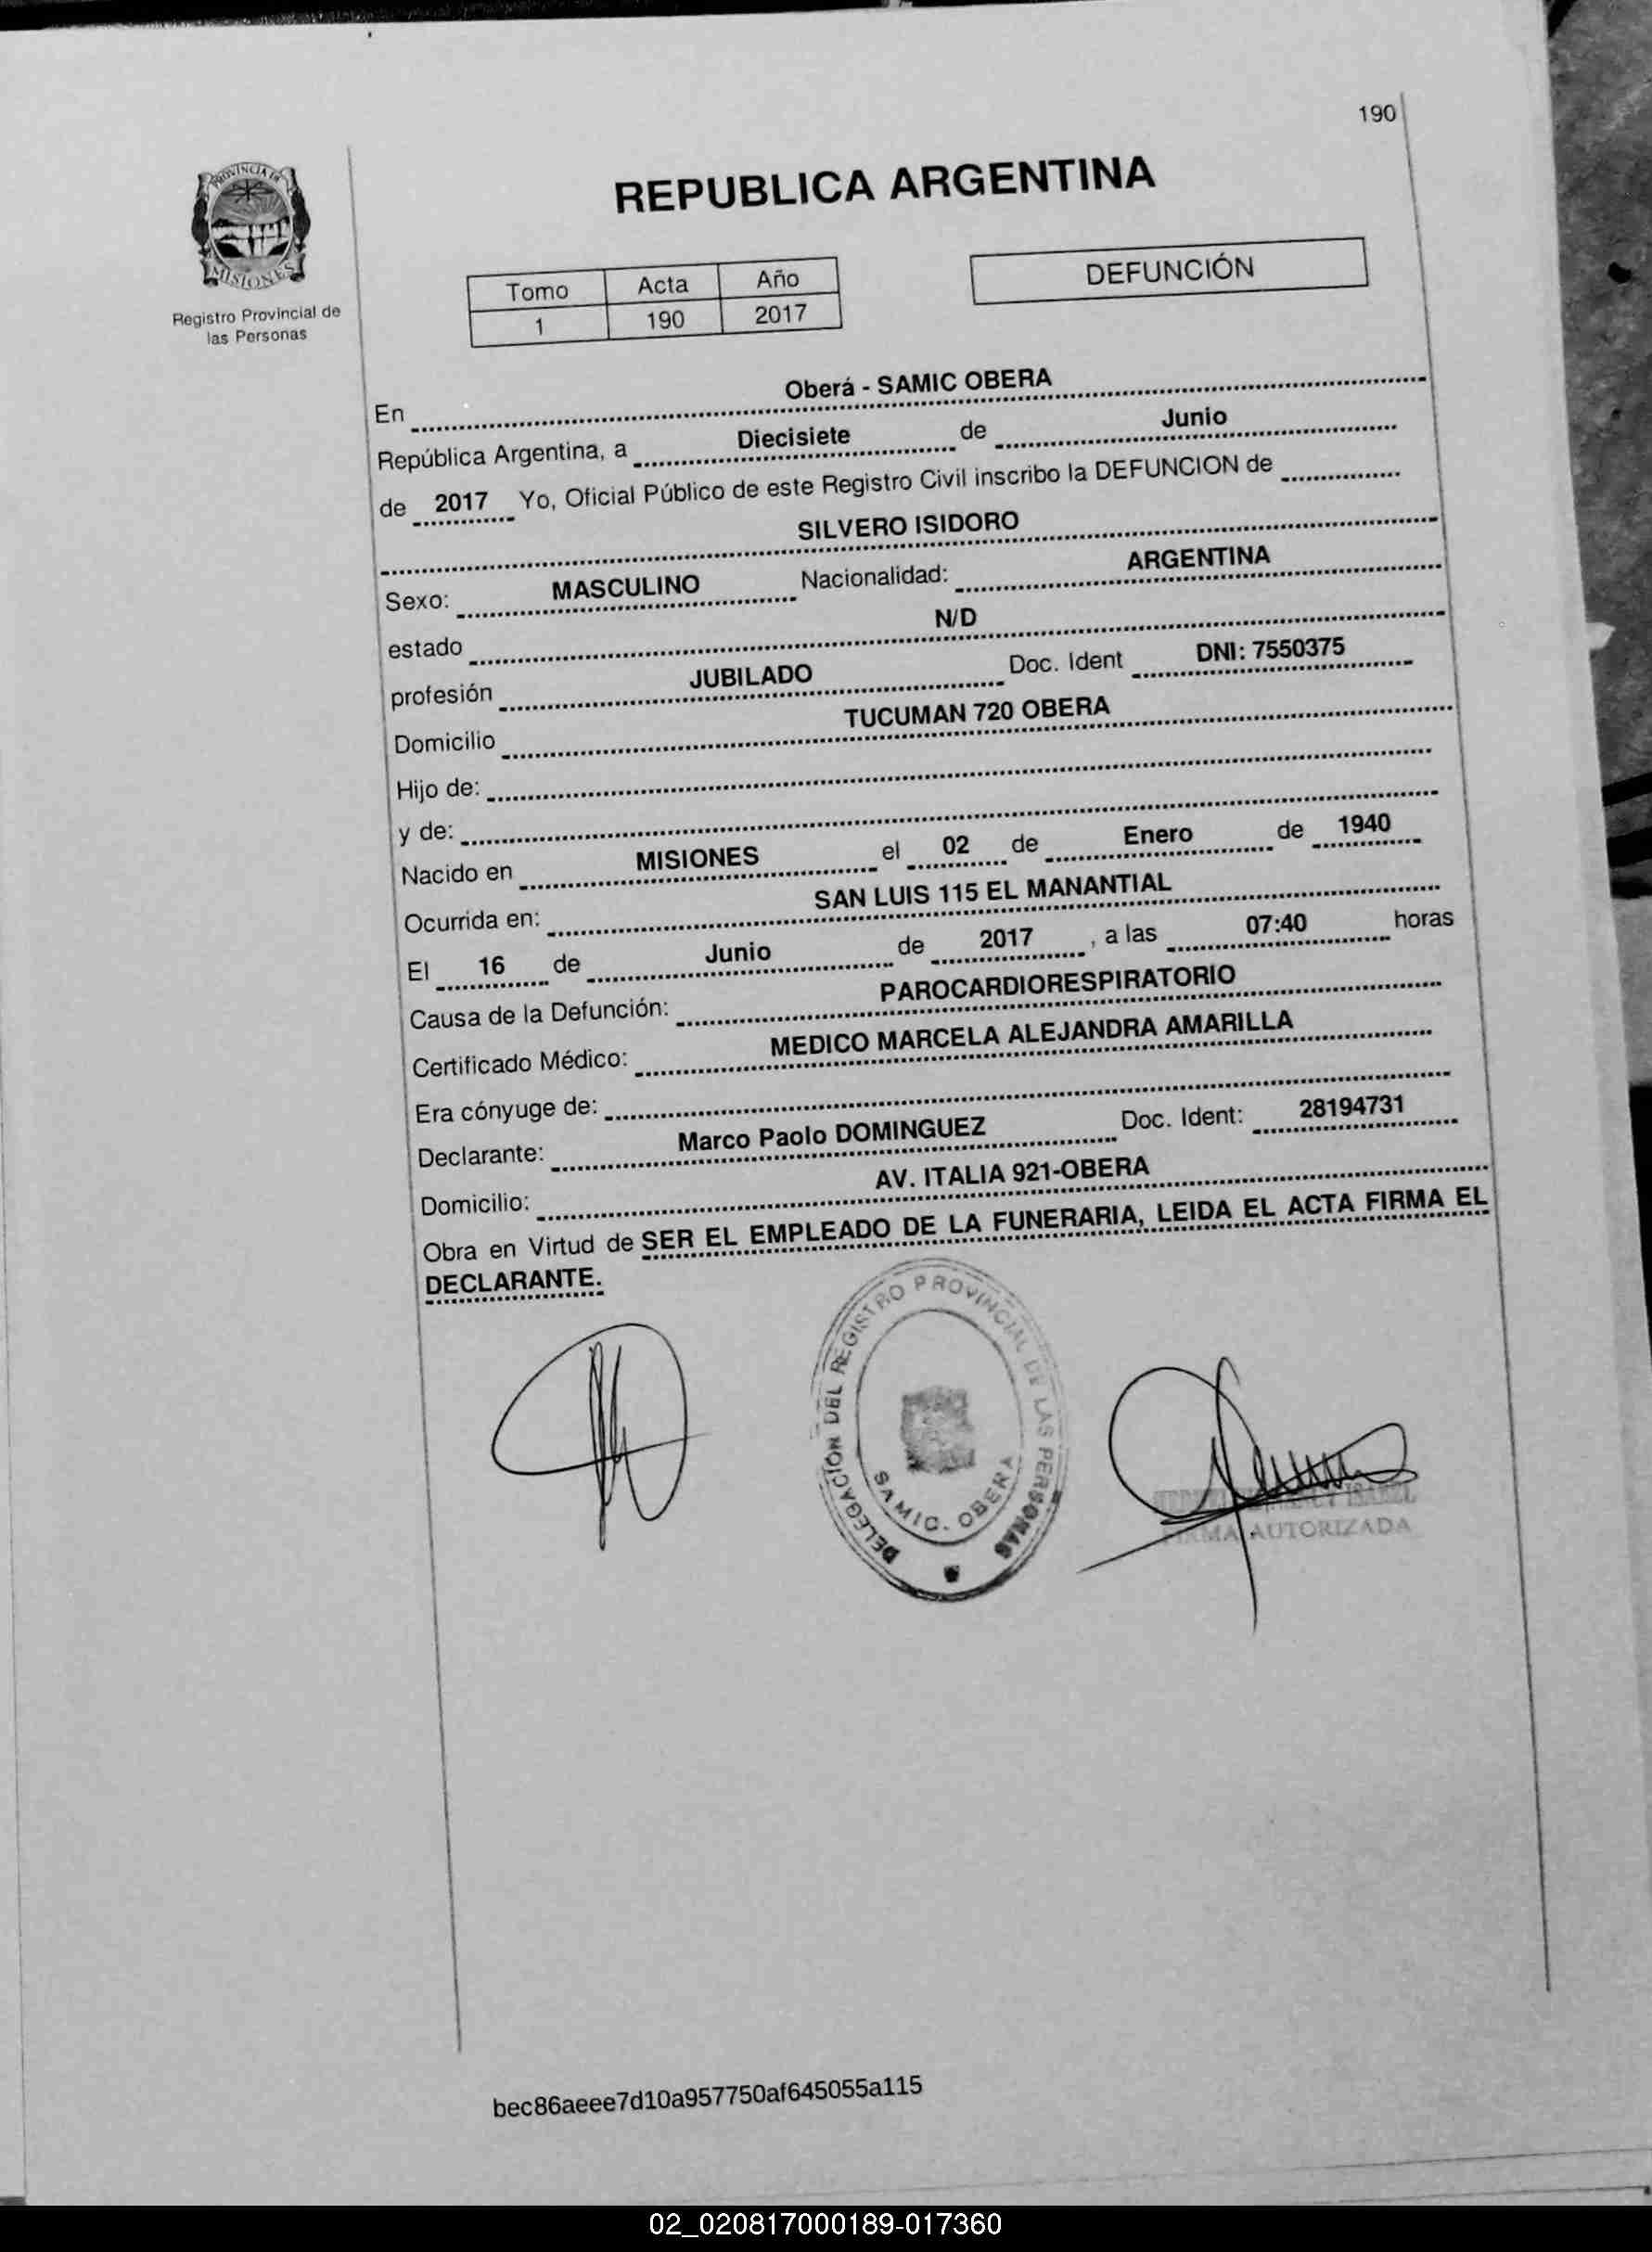 190
PROVINCIA DE
MISIONES
Registro Provincial de
las Personas
REPUBLICA ARGENTINA
Tomo Acta Año
1 190 2017
DEFUNCIÓN
En Oberá - SAMIC OBERA
República Argentina, a Diecisiete de Junio
de 2017 Yo, Oficial Público de este Registro Civil inscribo la DEFUNCION de
SILVERO ISIDORO
Sexo: MASCULINO Nacionalidad: ARGENTINA
estado N/D
profesión JUBILADO Doc. Ident DNI: 7550375
Domicilio TUCUMAN 720 OBERA
Hijo de:
y de:
Nacido en MISIONES el 02 de Enero de 1940
Ocurrida en: SAN LUIS 115 EL MANANTIAL
El 16 de Junio de 2017 , a las 07:40 horas
Causa de la Defunción: PAROCARDIORESPIRATORIO
Certificado Médico: MEDICO MARCELA ALEJANDRA AMARILLA
Era cónyuge de:
Declarante: Marco Paolo DOMINGUEZ Doc. Ident: 28194731
Domicilio: AV. ITALIA 921-OBERA
Obra en Virtud de SER EL EMPLEADO DE LA FUNERARIA, LEIDA EL ACTA FIRMA EL
DECLARANTE.
DELEGACION DEL REGISTRO PROVINCIAL DE LAS PERSONAS
SAMIC. OBERA
FIRMA AUTORIZADA
bec86aeee7d10a957750af645055a115
02_020817000189-017360